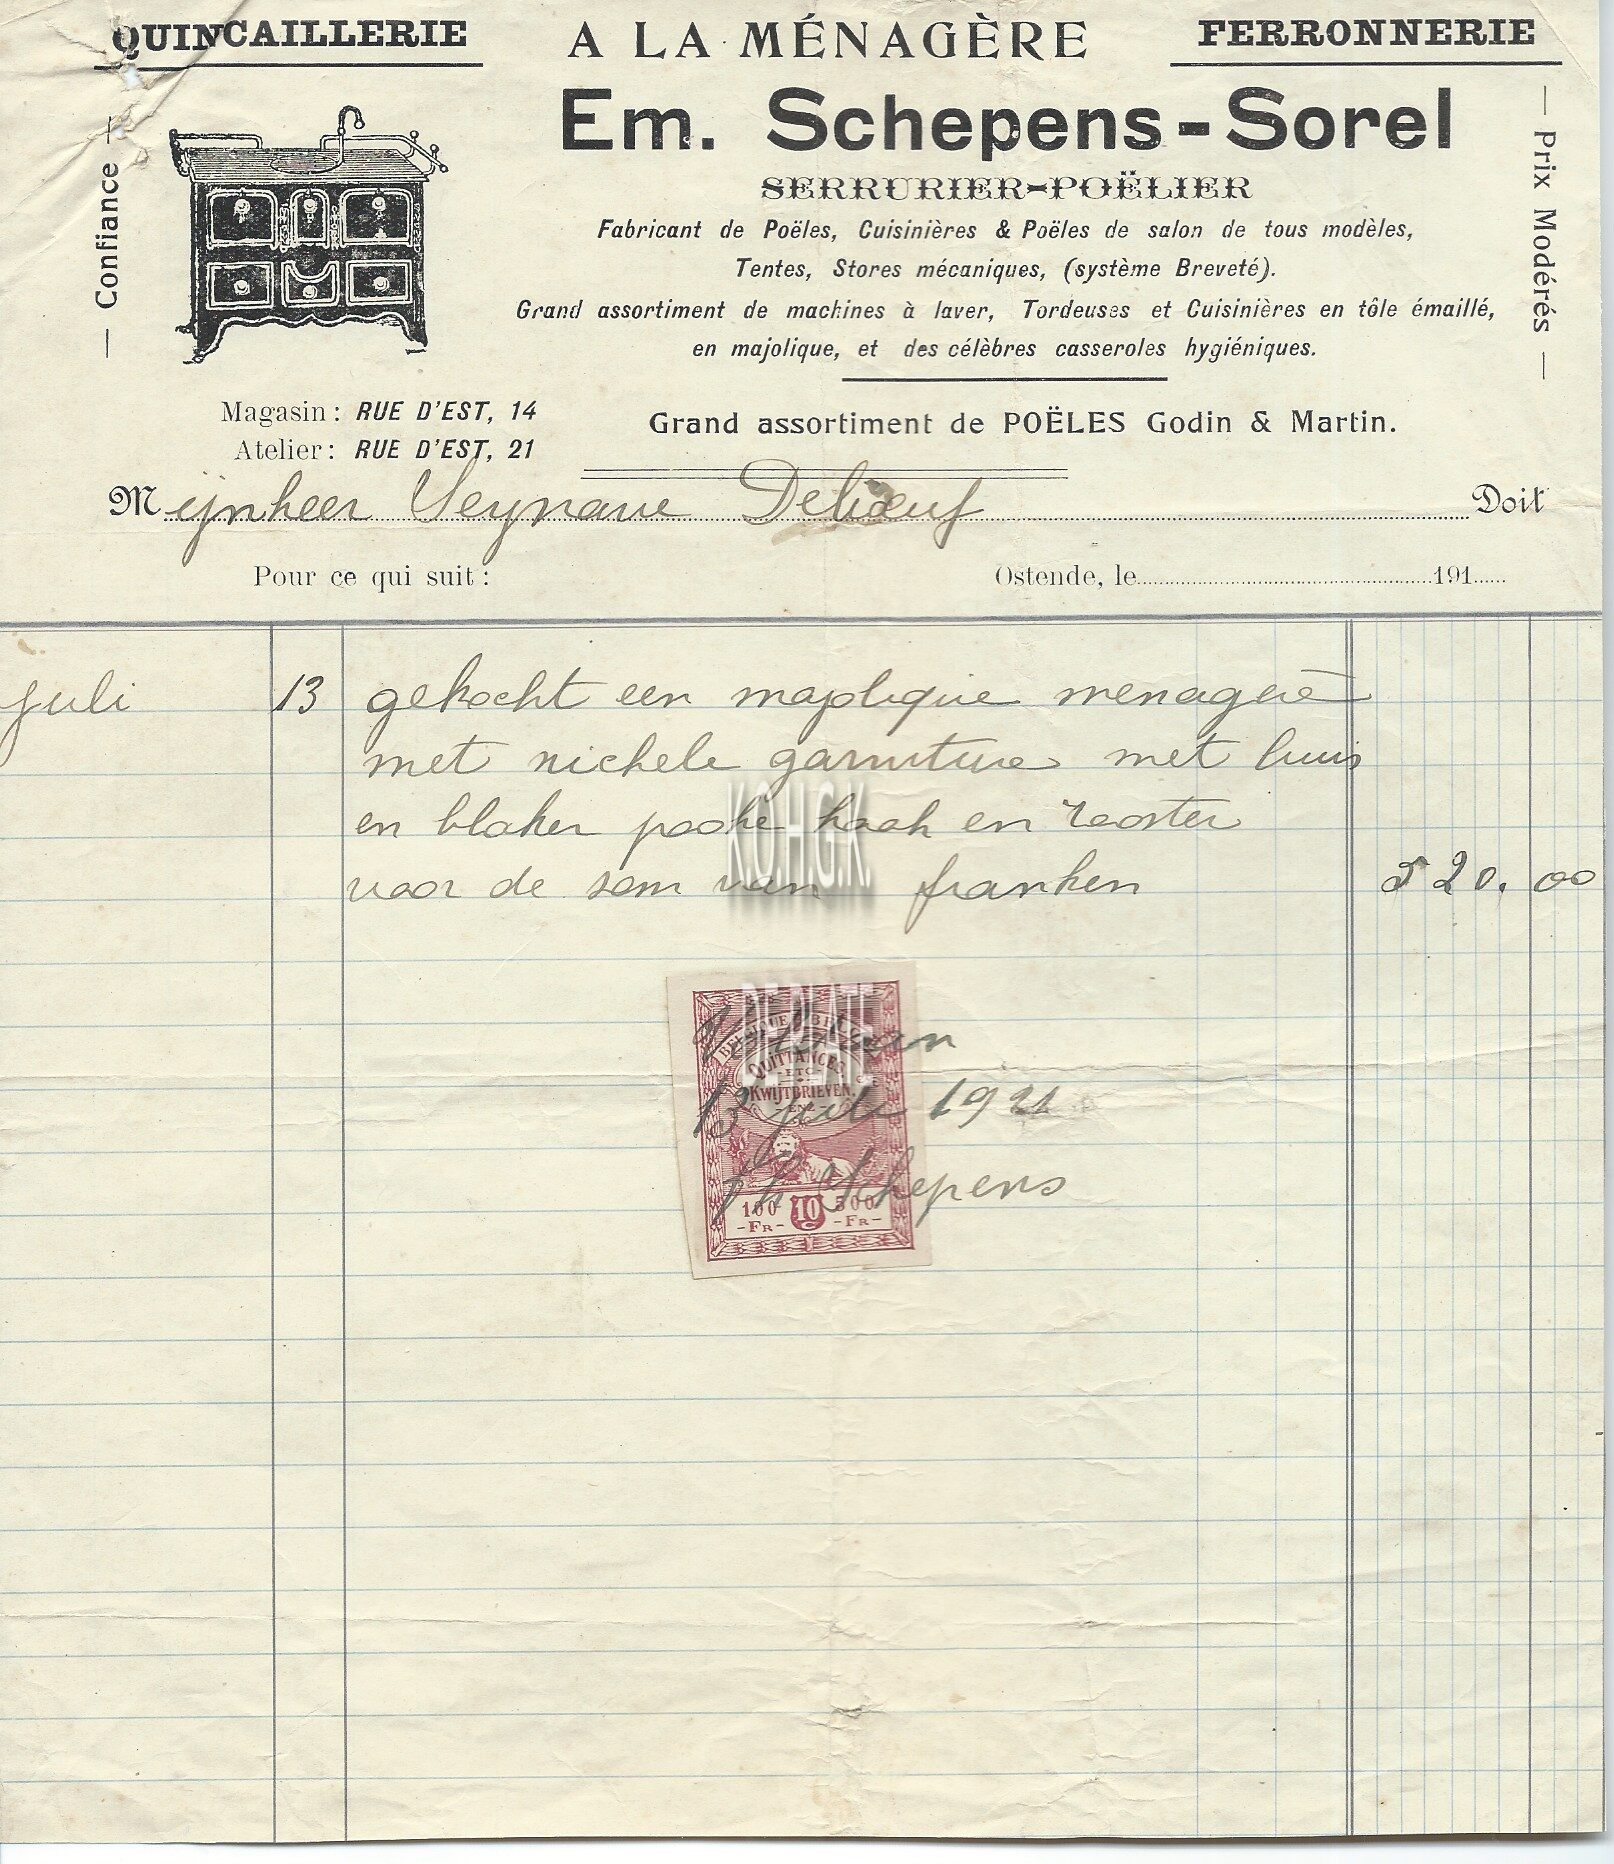 QUINCAILLERIE A LA MÉNAGÈRE FERRONNERIE
Em. Schepens-Sorel
SERRURIER-POËLIER
— Confiance —
— Prix Modérés —
Fabricant de Poëles, Cuisinières & Poëles de salon de tous modèles,
Tentes, Stores mécaniques, (système Breveté).
Grand assortiment de machines à laver, Tordeuses et Cuisinières en tôle émaillé,
en majolique, et des célèbres casseroles hygiéniques.
Magasin: RUE D'EST, 14
Atelier: RUE D'EST, 21
Grand assortiment de POËLES Godin & Martin.
Mijnheer Seynave Debœuf Doit
Pour ce qui suit: Ostende, le 191
juli 13 gekocht een majolique menagere
met nickele garniture met buis
en blaker pooke haak en rooster
voor de som van franken 520,00
K.O.H.G.K.
DE PLATE
BELGIQUE BELGIË
QUITTANCES
ETC
KWIJTBRIEVEN
ENZ
Voldaan
13 juli 1921
Schepens
100 10 500
-FR- C -FR-